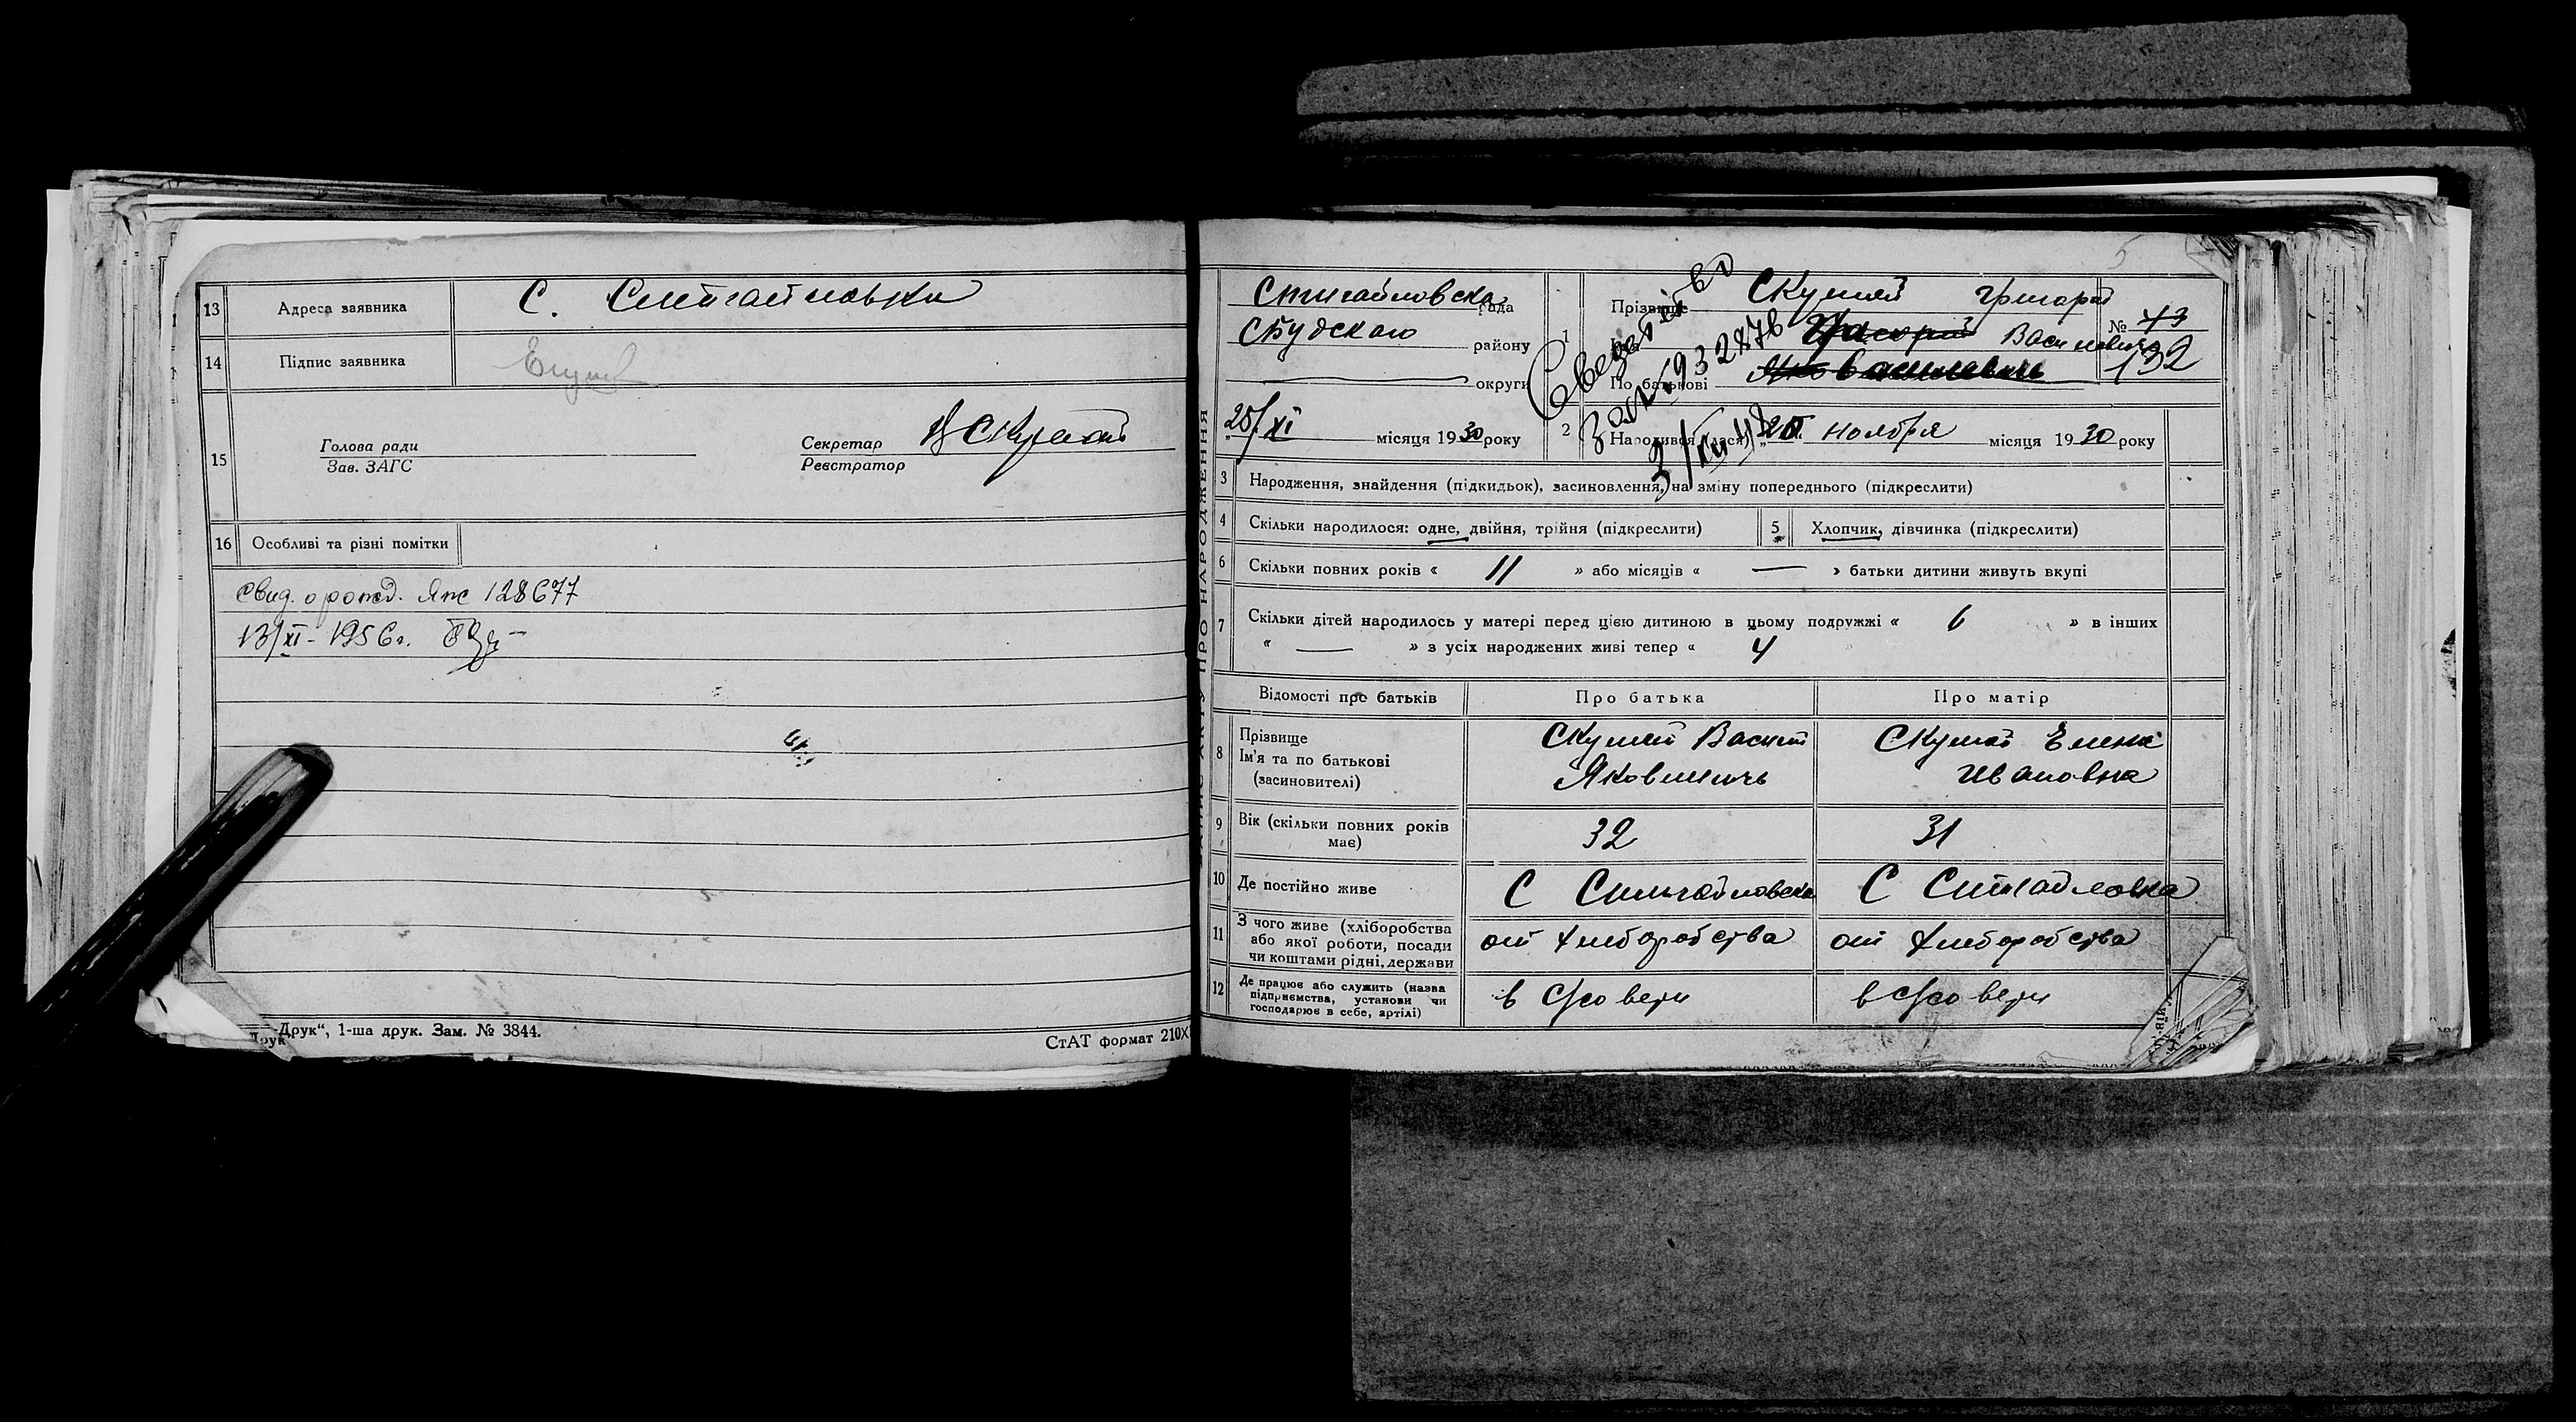 13 Адреса заявника С.
14 Підпис заявника
15 Голова ради
Зав. ЗАГС
Секретар
Реєстратор
16 Особливі та різні помітки
свид. о рожд. 128677
13/XI - 1956 г.
Друк“, 1-ша друк. Зам. № 3844.
Друк
СтАТ формат 210Х
ПРО НАРОДЖЕННЯ
5
рада
району
округи
25/XI місяця 1930 року
1 Прізвище Скумай Григорій
Василевич
По батькові Василевичь
№ 43
132
932876
2 Народився (лася) ноября місяця 1930 року
3 Народження, знайдення (підкидьок), засиновлення, на зміну попереднього (підкреслити)
4 Скільки народилося: одне, двійня, трійня (підкреслити)
5 Хлопчик, дівчинка (підкреслити)
6 Скільки повних років « 11 » або місяців « — » батьки дитини живуть вкупі
7 Скільки дітей народилось у матері перед цією дитиною в цьому подружжі « 6 » в інших
« — » з усіх народжених живі тепер « 4
Відомості про батьків Про батька Про матір
8 Прізвище
Ім'я та по батькові
(засиновителі)
Скумай Васили
Яковлевичь
Скумай Елена
Ивановна
9 Вік (скільки повних років
має)
32 31
10 Де постійно живе С С
11 З чого живе (хліборобства
або якої роботи, посади
чи коштами рідні, держави
от хлеборобства от хлеборобства
12 Де працює або служить (назва
підприємства, установи чи
господарює в себе, артілі)
в в